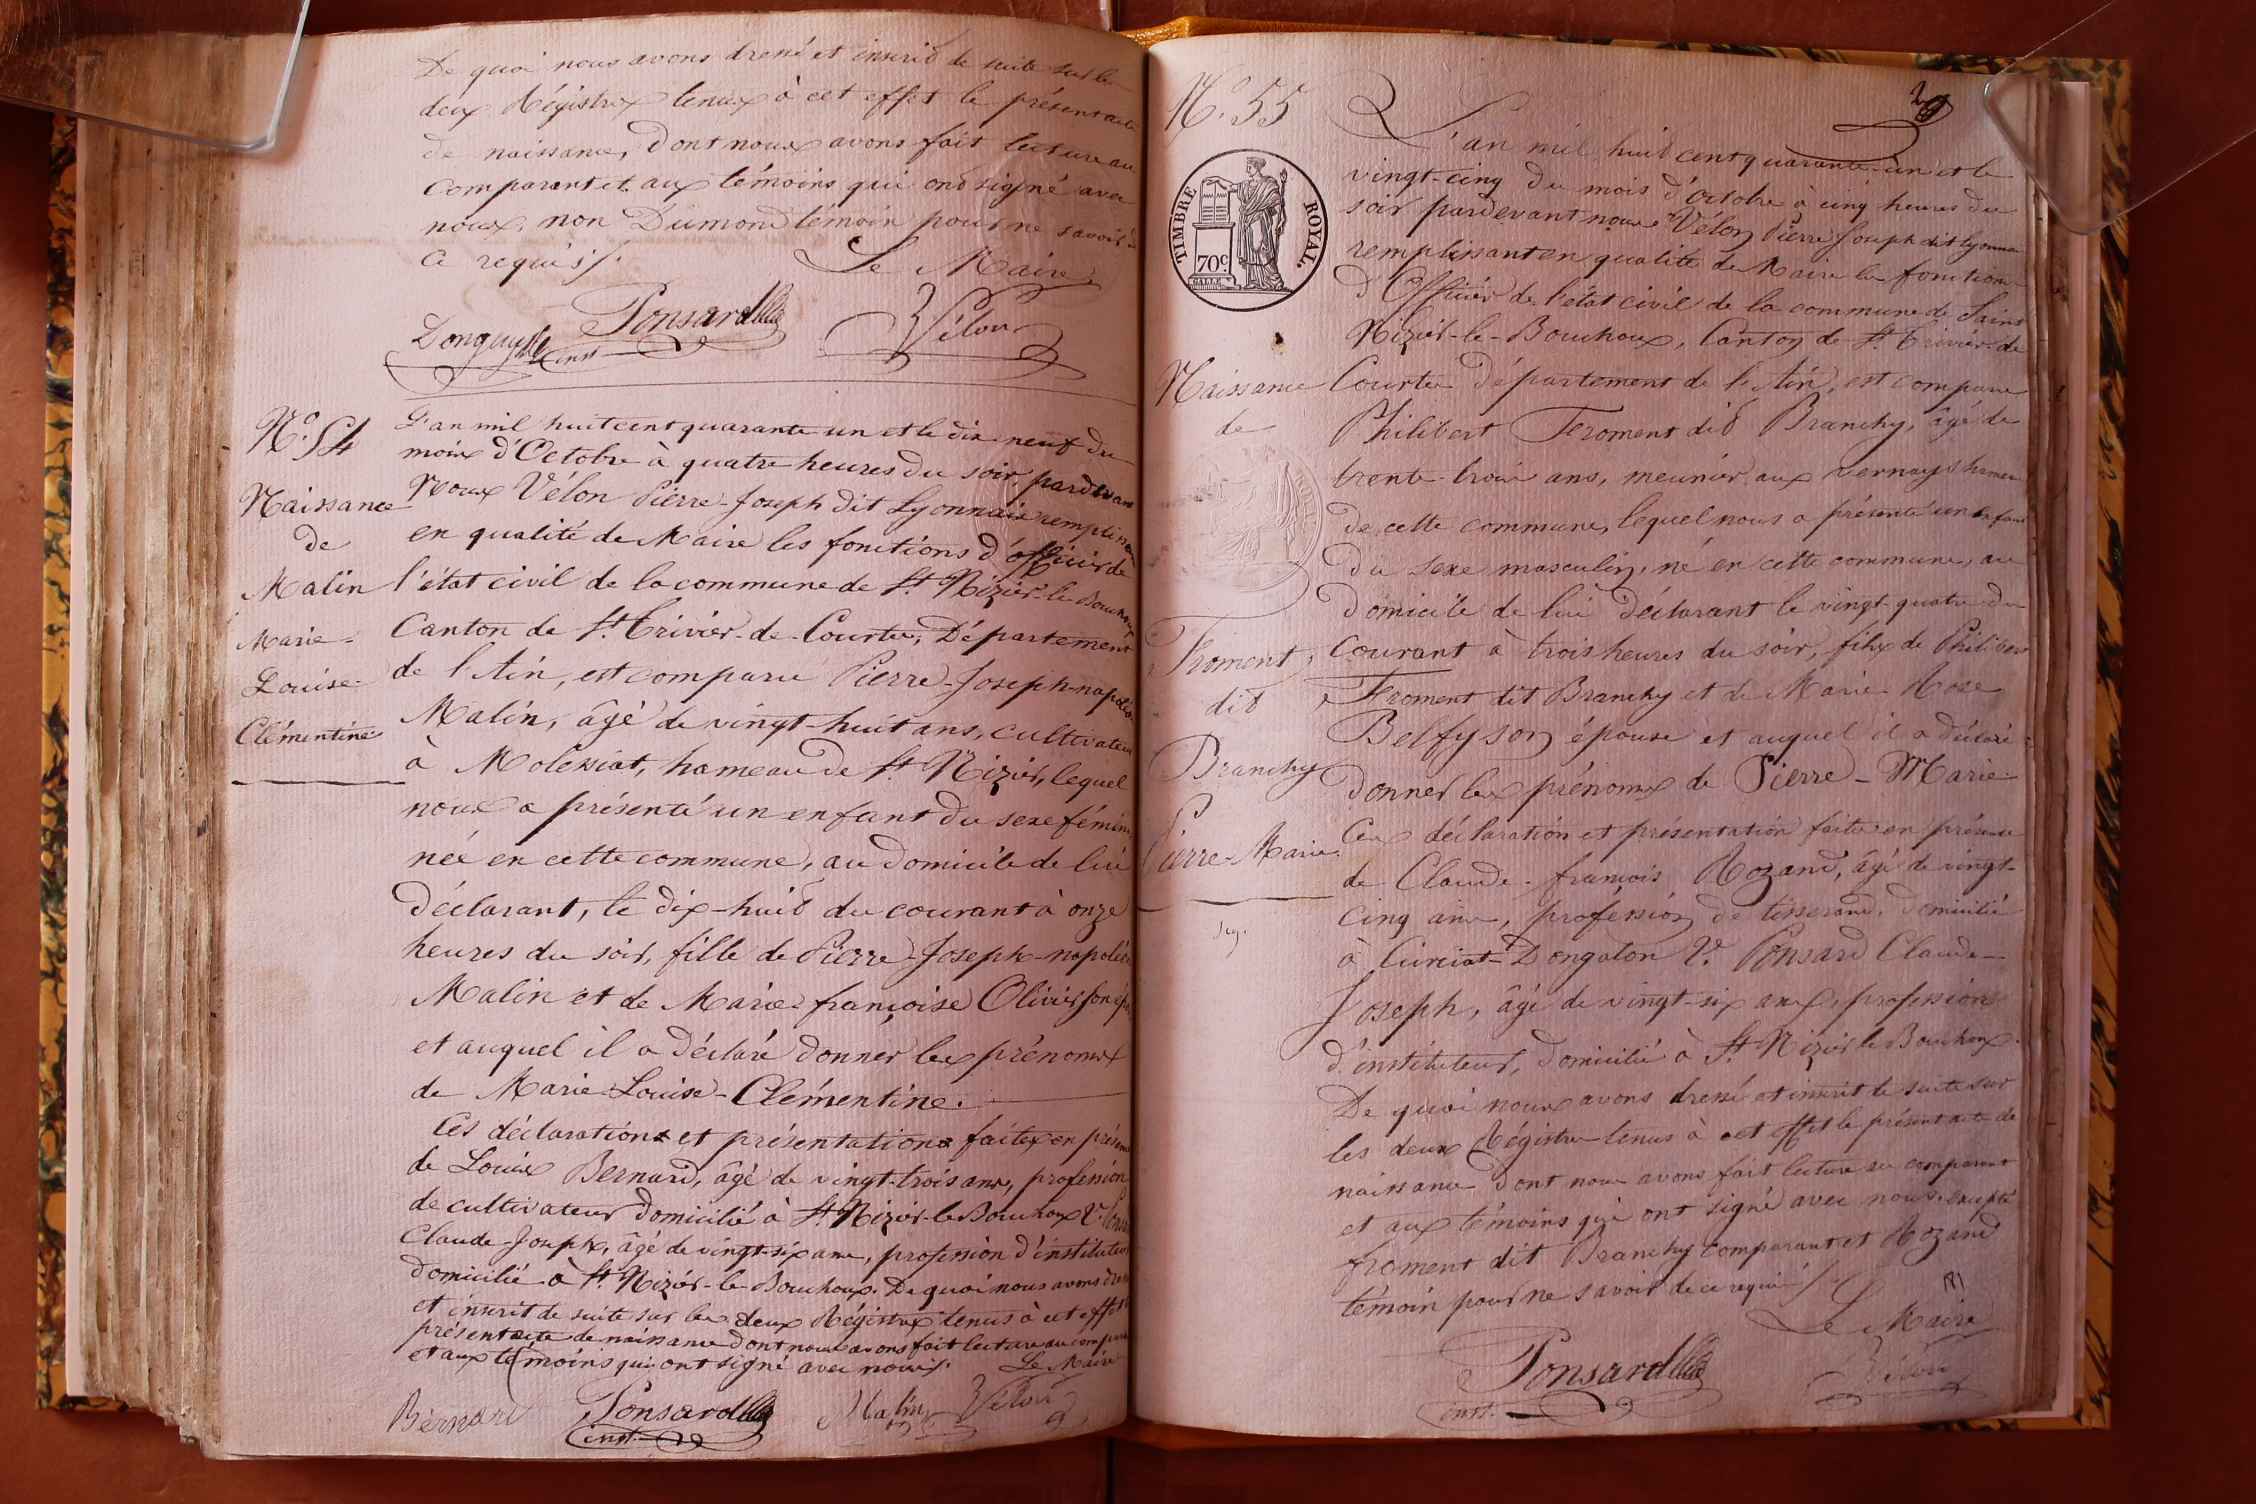 De quoi nous avons dressé et inscrit de suite sur les
deux Régistres tenus à cet effet le présent acte
de naissance, dont nous avons fait lecture au
comparant et aux témoins qui ont signé avec
nous, non Dumond témoin pour ne savoir de
ce requis.
Le Maire
Ponsard
Vélon
inst.
N° 54
Naissance
de
Malin
Marie-
Louise-
Clémentine
L'an mil huit cent quarante un et le dix neuf du
mois d'Octobre à quatre heures du soir, pardevant
Nous Vélon Pierre-Joseph dit Lyonnais remplissant
en qualité de Maire les fonctions d'officier de
l'état civil de la commune de St Nizier-le-Bouchoux
Canton de St Trivier-de-Courtes, Département
de l'Ain, est comparu Pierre-Joseph-napoléon
Malin, âgé de vingt-huit ans, cultivateur
à Molessiat, hameau de St Nizier, lequel
nous a présenté un enfant du sexe féminin
née en cette commune, au domicile de lui
déclarant, le dix-huit du courant à onze
heures du soir, fille de Pierre-Joseph-napoléon
Malin et de Marie-françoise Olivier son ép.
et auquel il a déclaré donner les prénoms
de Marie-Louise-Clémentine.
Ces déclarations et présentations faites en présence
de Louis Bernard, âgé de vingt-trois ans, profession
de cultivateur domicilié à St Nizier-le-Bouchoux 2° Ponsard
Claude-Joseph, âgé de vingt-six ans, profession d'instituteur
domicilié à St Nizier-le-Bouchoux. De quoi nous avons dressé
et inscrit de suite sur les deux Régistres tenus à cet effet le
présent acte de naissance dont nous avons fait lecture au comparant
et aux témoins qui ont signé avec nous.
Le Maire
Bernard
Ponsard
Malin
Vélon
inst.
N° 55
TIMBRE ROYAL.
70c
Naissance
de
Froment,
dit
Branchy
Pierre-Marie
L'an mil huit cent quarante-un et le
vingt-cinq du mois d'octobre à cinq heures du
soir pardevant nous Vélon Pierre Joseph dit Lyonnais
remplissant en qualité de Maire les fonctions
d'Officier de l'état civil de la commune de Saint
Nizier-le-Bouchoux, Canton de St Trivier-de
Courtes Département de l'Ain, est comparu
Philibert Froment dit Branchy, âgé de
trente-trois ans, meunier aux vernays hameau
de cette commune, lequel nous a présenté un enfant
du sexe masculin, né en cette commune, au
domicile de lui déclarant le vingt-quatre du
courant à trois heures du soir, fils de Philibert
Froment dit Branchy et de Marie-Rose
Belfy son épouse et auquel il a déclaré
donner les prénoms de Pierre-Marie
Ces déclaration et présentation faites en présence
de Claude-françois Rozand, âgé de vingt-
cinq ans, profession de tisserand, domicilié
à Curciat-Dongalon 2° Ponsard Claude-
Joseph, âgé de vingt-six ans, profession
d'instituteur, domicilié à St Nizier le Bouchoux.
De quoi nous avons dressé et inscrit de suite sur
les deux Régistres tenus à cet effet le présent acte de
naissance dont nous avons fait lecture au comparant
et aux témoins qui ont signé avec nous excepté
froment dit Branchy comparant et Rozand
témoin pour ne savoir de ce requis
Le Maire
Ponsard
Vélon
inst.